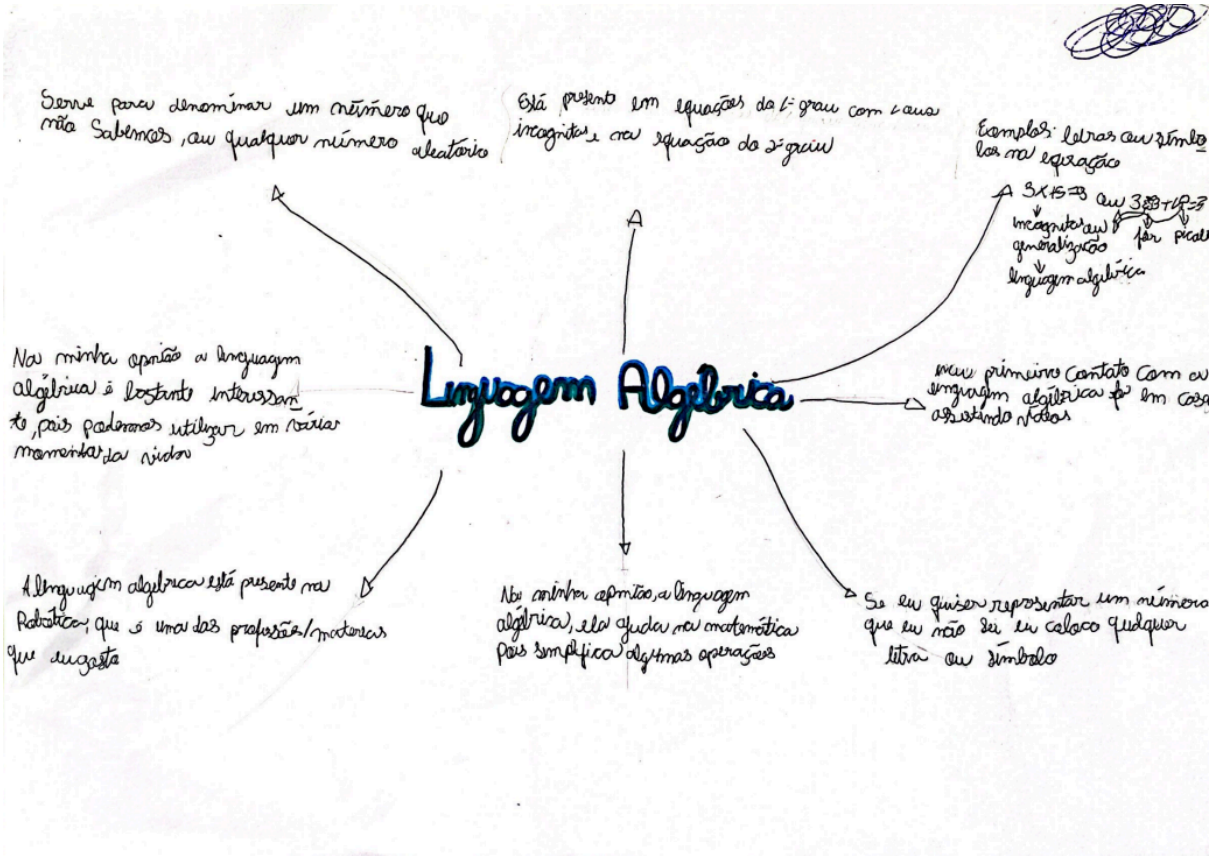 Serve para denominar um número que
não Sabemos, ou qualquer número aleatório
Está presente em equações do 1º grau com duas
incognitas e na equação do 2º grau
Exemplos: letras ou símbo
los na equação
3x+5=8 ou
incognitas ou
generalização
flor picolé
linguagem algébrica
Na minha opinião a linguagem
algébrica é bastante interessan
te, pois podemos utilizar em várias
momentos da vida
Linguagem Algébrica
meu primeiro Contato Com a
linguagem algébrica foi em casa
assistindo videos
A linguagem algebrica está presente na
Robótica, que é uma das profissões/materias
que eu gosto
Na minha opinião, a linguagem
algébrica, ela ajuda na matemática
pois simplifica algumas operações
Se eu quiser representar um número
que eu não sei eu coloco qualquer
letra ou símbolo